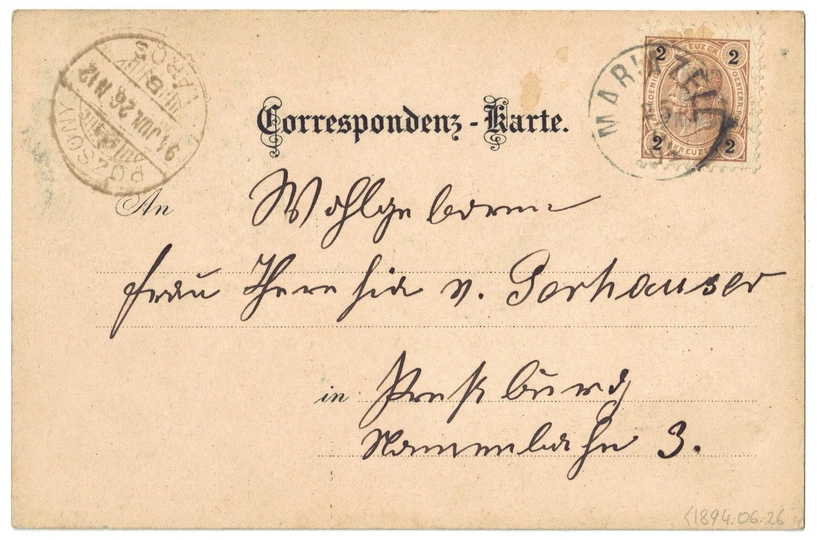 POZSONY
94 JUN. 26 N12
VÁROS
MARIAZELL
2 KREUZER 2
2 KREUZER 2
Correspondenz-Karte.
An Wohlgeboren
Frau Theresia v.
in Pressburg
3.
1894.06.26